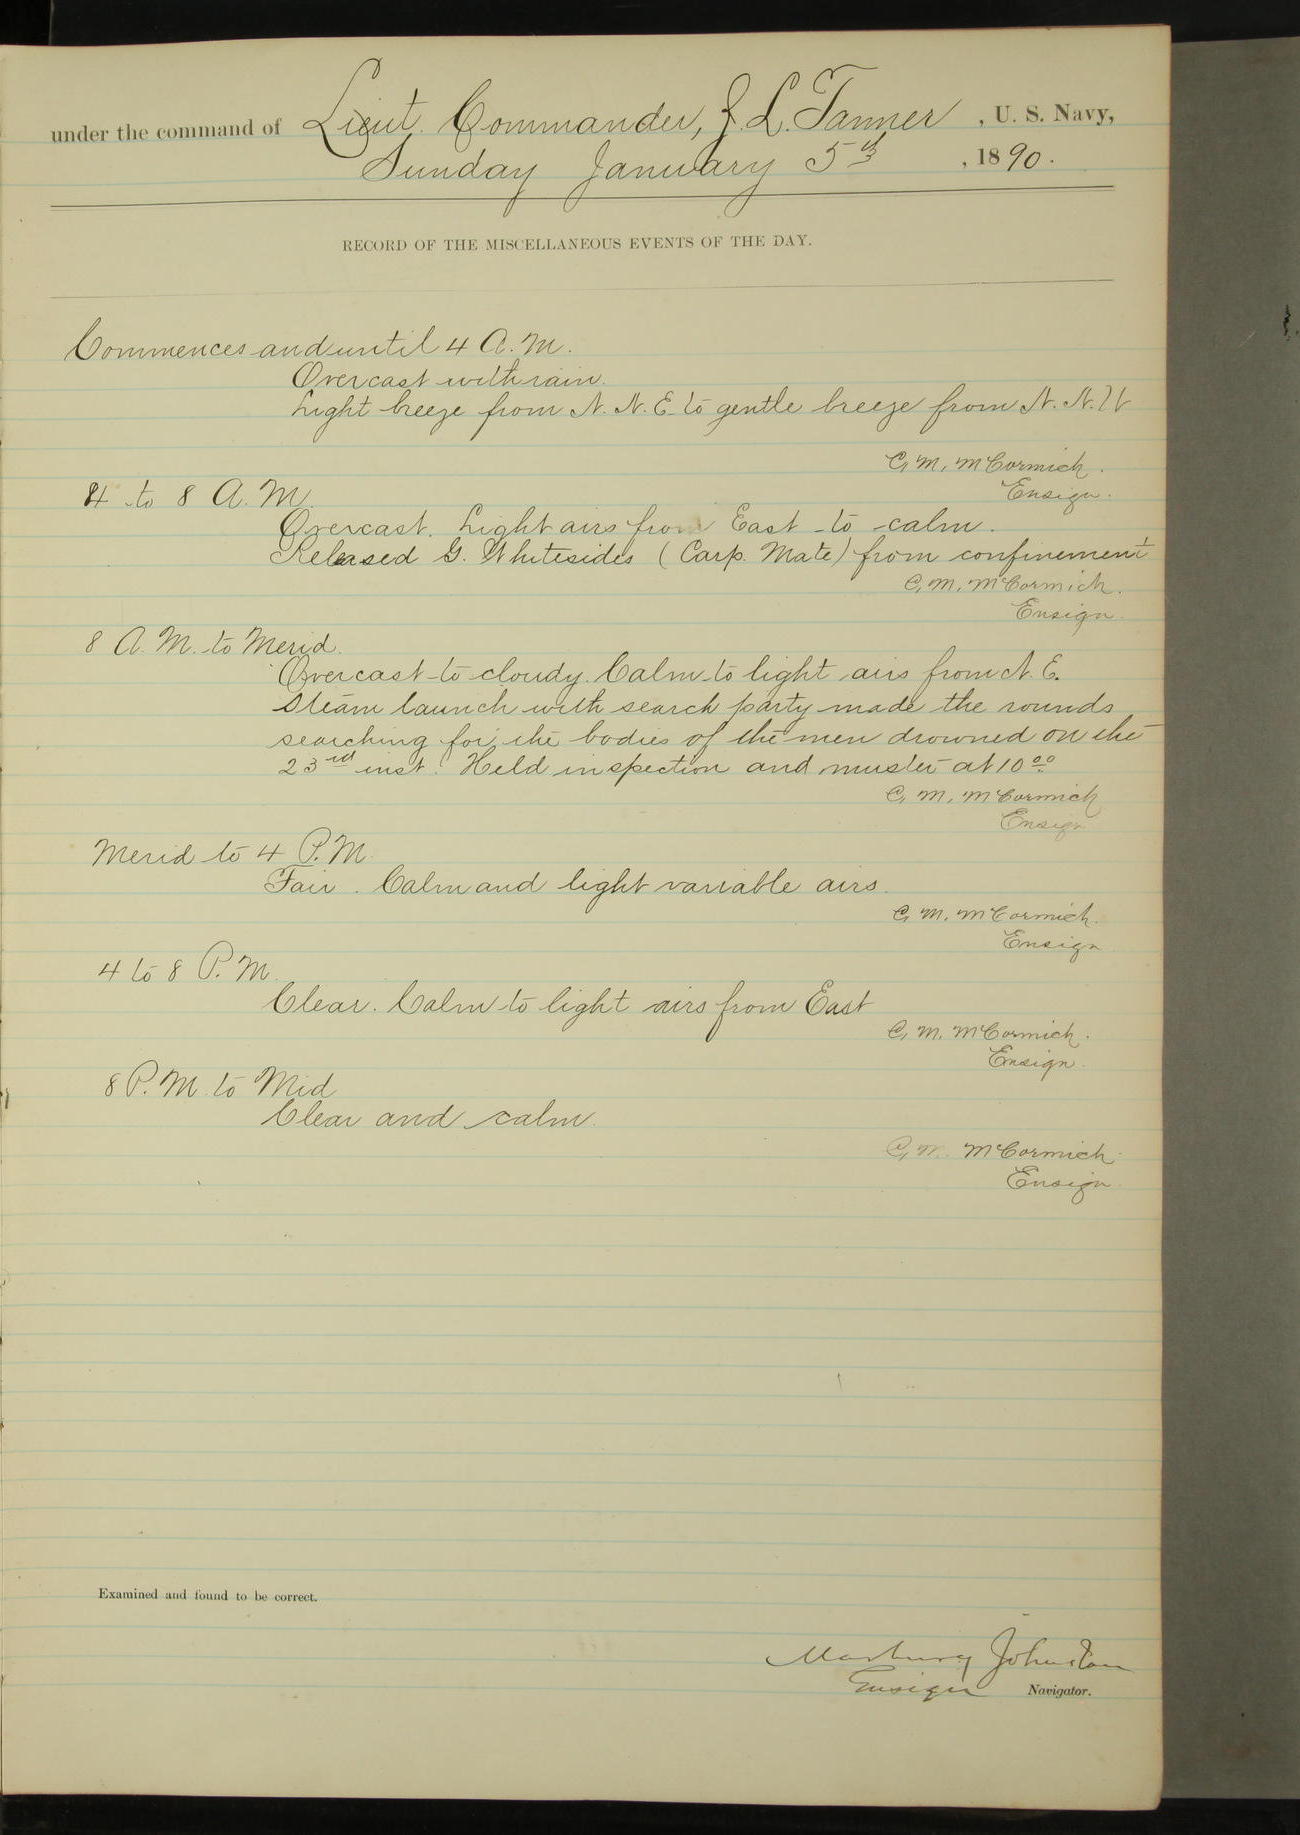 under the command of Lieut. Commander, Z. L. Tanner, U. S. Navy,
Sunday January 5th, 1890.
RECORD OF THE MISCELLANEOUS EVENTS OF THE DAY.
Commences and until 4 A.M.
Overcast with rain.
Light breeze from N.N.E. to gentle breeze from N.N.W
C. M. McCormick.
Ensign.
4 to 8 A.M.
Overcast. Light airs from East to calm.
Released G. Whitesides (Carp. Mate) from confinement
C. M. McCormick.
Ensign.
8 A.M. to Merid.
Overcast to cloudy. Calm to light airs from N.E.
Steam launch with search party made the rounds
searching for the bodies of the men drowned on the
23rd inst. Held inspection and muster at 10 00
C. M. McCormick
Ensign
Merid to 4 P.M.
Fair. Calm and light variable airs.
C. M. McCormick.
Ensign
4 to 8 P.M.
Clear. Calm to light airs from East
C. M. McCormick.
Ensign.
8 P.M. to Mid
Clear and calm.
C. M. McCormick.
Ensign.
Examined and found to be correct.
Marbury Johnston
Ensign Navigator.